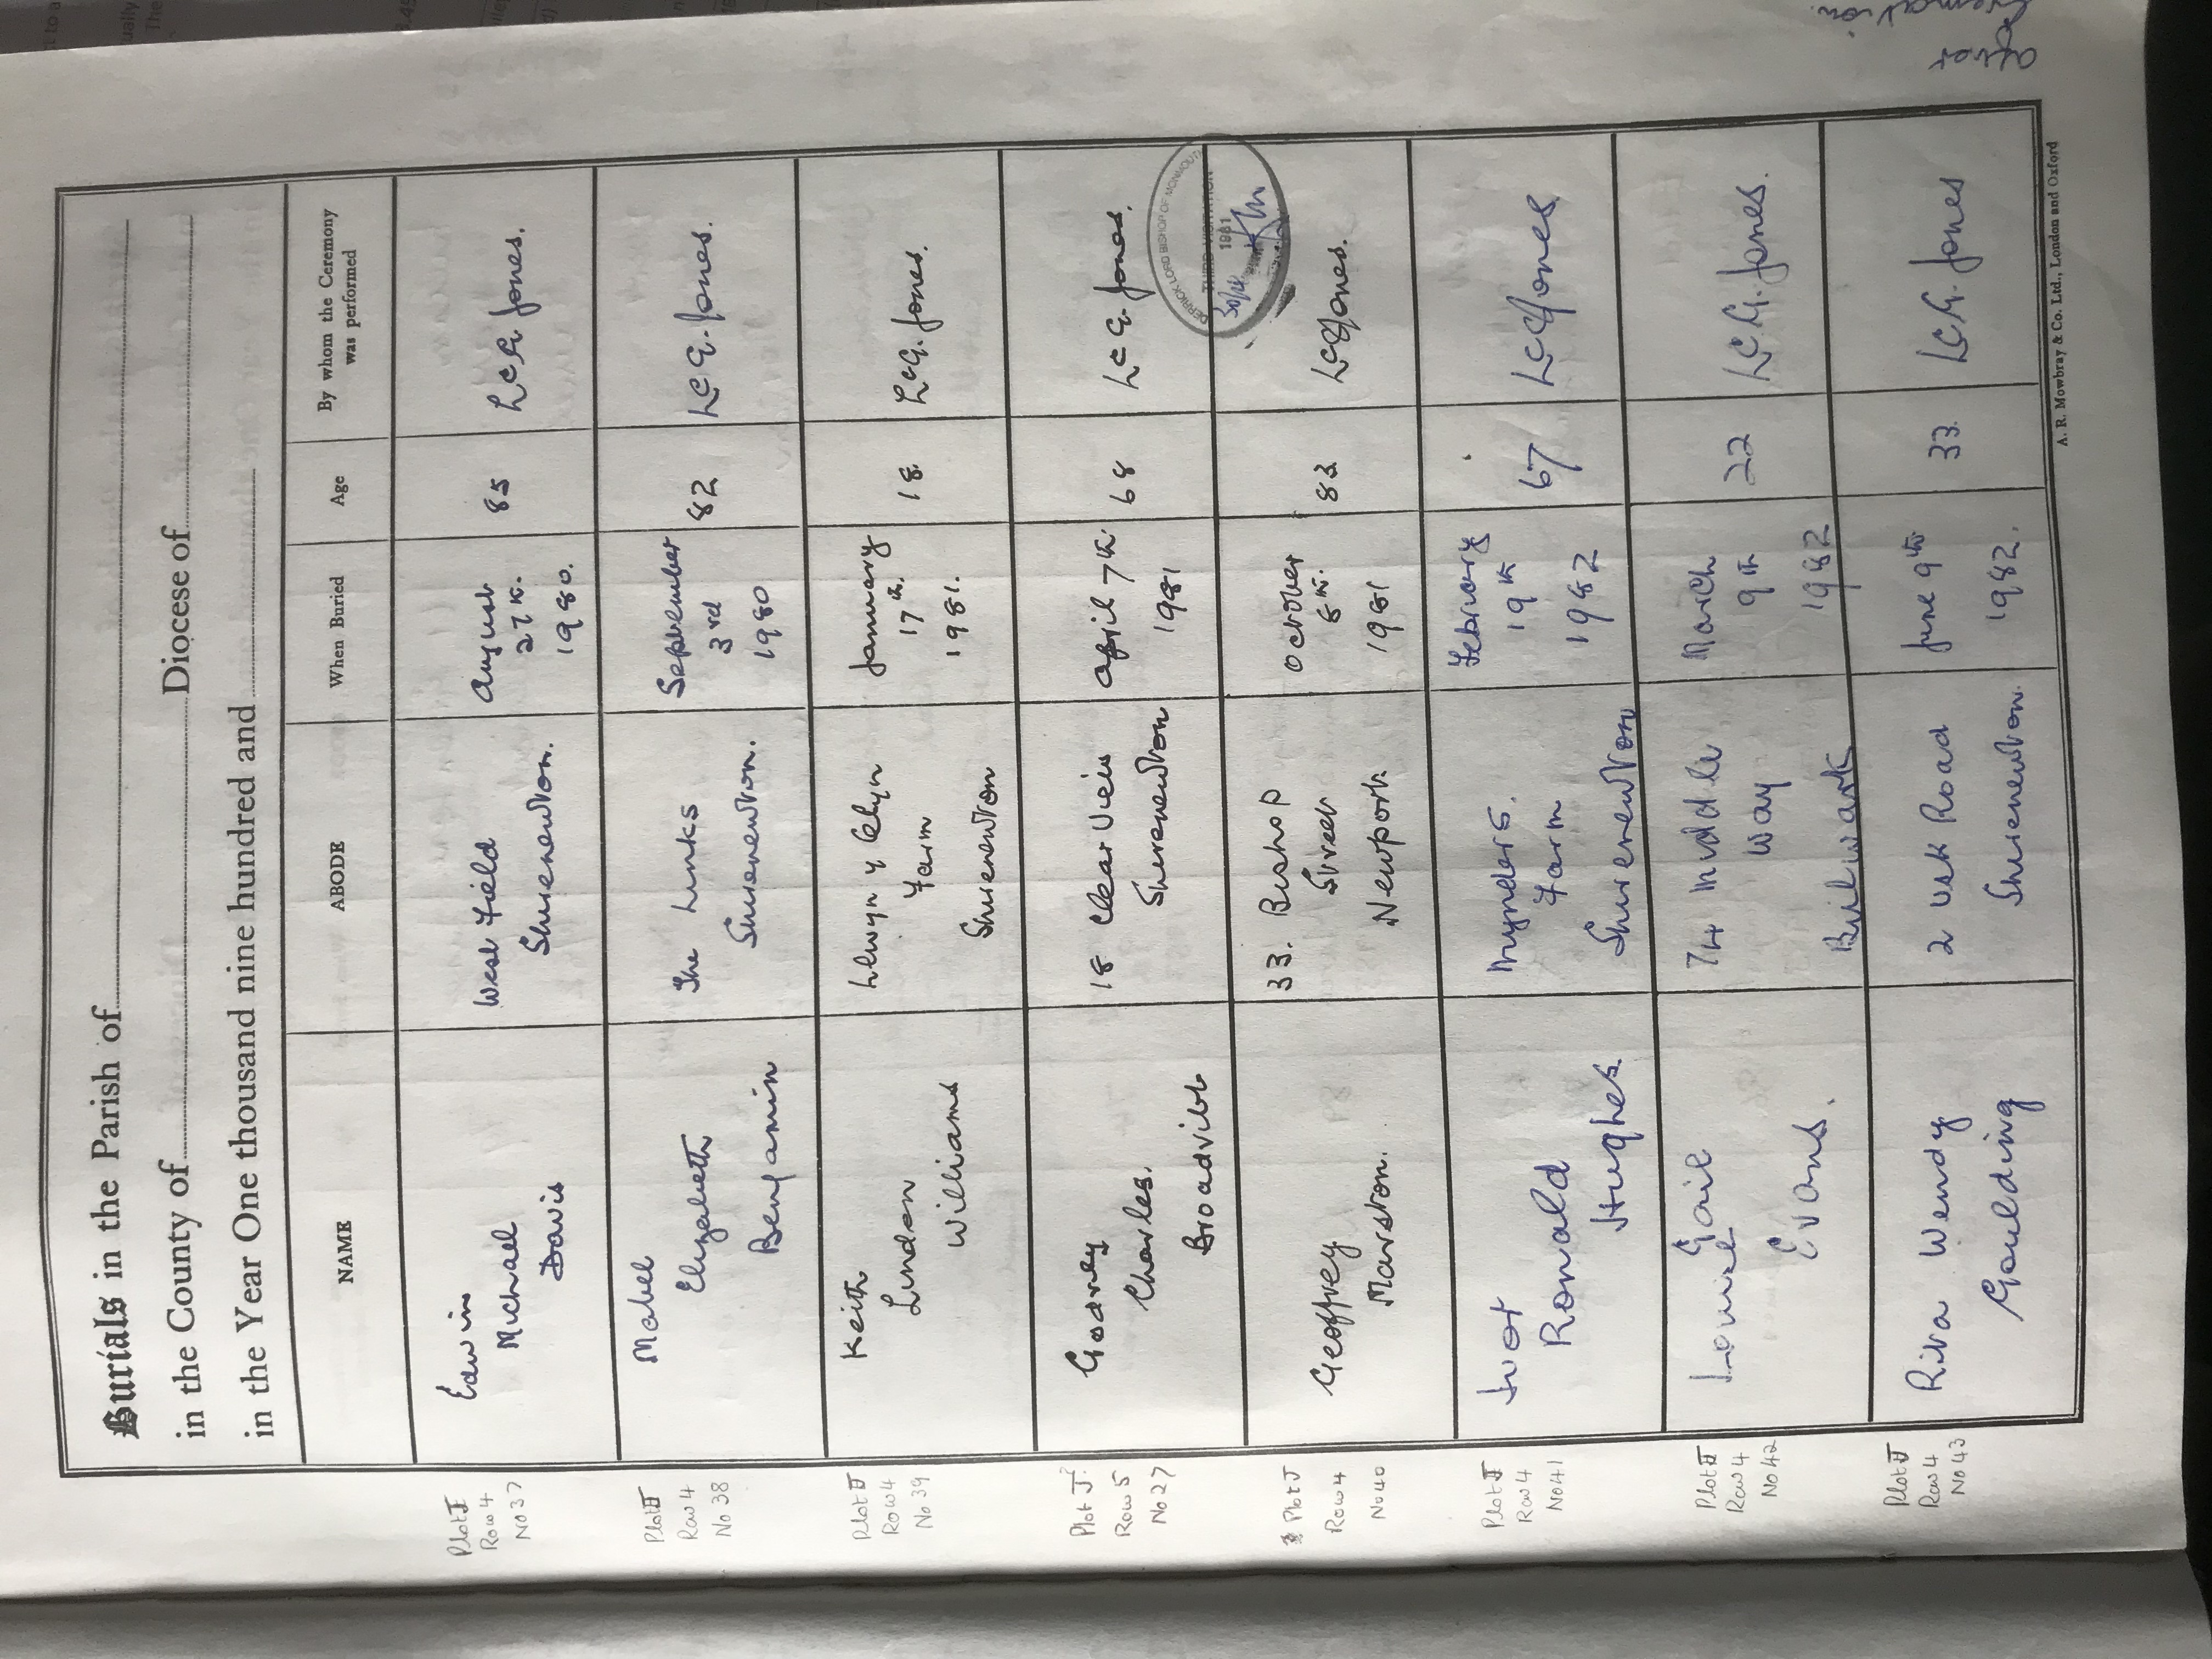 Burials in the Parish of
in the County of Diocese of
in the Year One thousand nine hundred and
NAME ABODE When Buried Age By whom the Ceremony was performed
Plot J
Row 4
No 37
Edwin
Michael
Davis
West Field
Shirenewton.
August
27th.
1980.
85
L C G. Jones.
Plot J
Row 4
No 38
Mabel
Elizabeth
Benjamin
The Links
Shirenewton.
September
3rd
1980
82
L C G. Jones.
Plot J
Row 4
No 39
Keith
Lindon
Williams
Llwyn y Celyn
Farm
Shirenewton
January
17th.
1981.
18
L C G. Jones.
Plot J?
Row 5
No 27
Godfrey
Charles.
Broadribb
18 Clear View
Shirenewton
April 7th.
1981
68
L C G. Jones.
DERRICK LORD BISHOP OF MONMOUTH
THIRD VISITATION
1981
Plot J
Row 4
No 40
Geoffrey
Marston.
33. Bishop
Street
Newport.
October
8th.
1981
83
L C G Jones.
Plot J
Row 4
No 41
Ivor
Ronald
Hughes
Mynders.
Farm
Shirenewton
February
19th
1982
67
L C G Jones
Plot J
Row 4
No 42
Louise Gail
Evans.
74 Middle
Way
Bulwark
March
9th
1982
22
L C G. Jones.
Plot J
Row 4
No 43
Rita Wendy
Goulding
2 Usk Road
Shirenewton.
June 9th
1982.
33.
L C G. Jones
A. R. Mowbray & Co. Ltd., London and Oxford